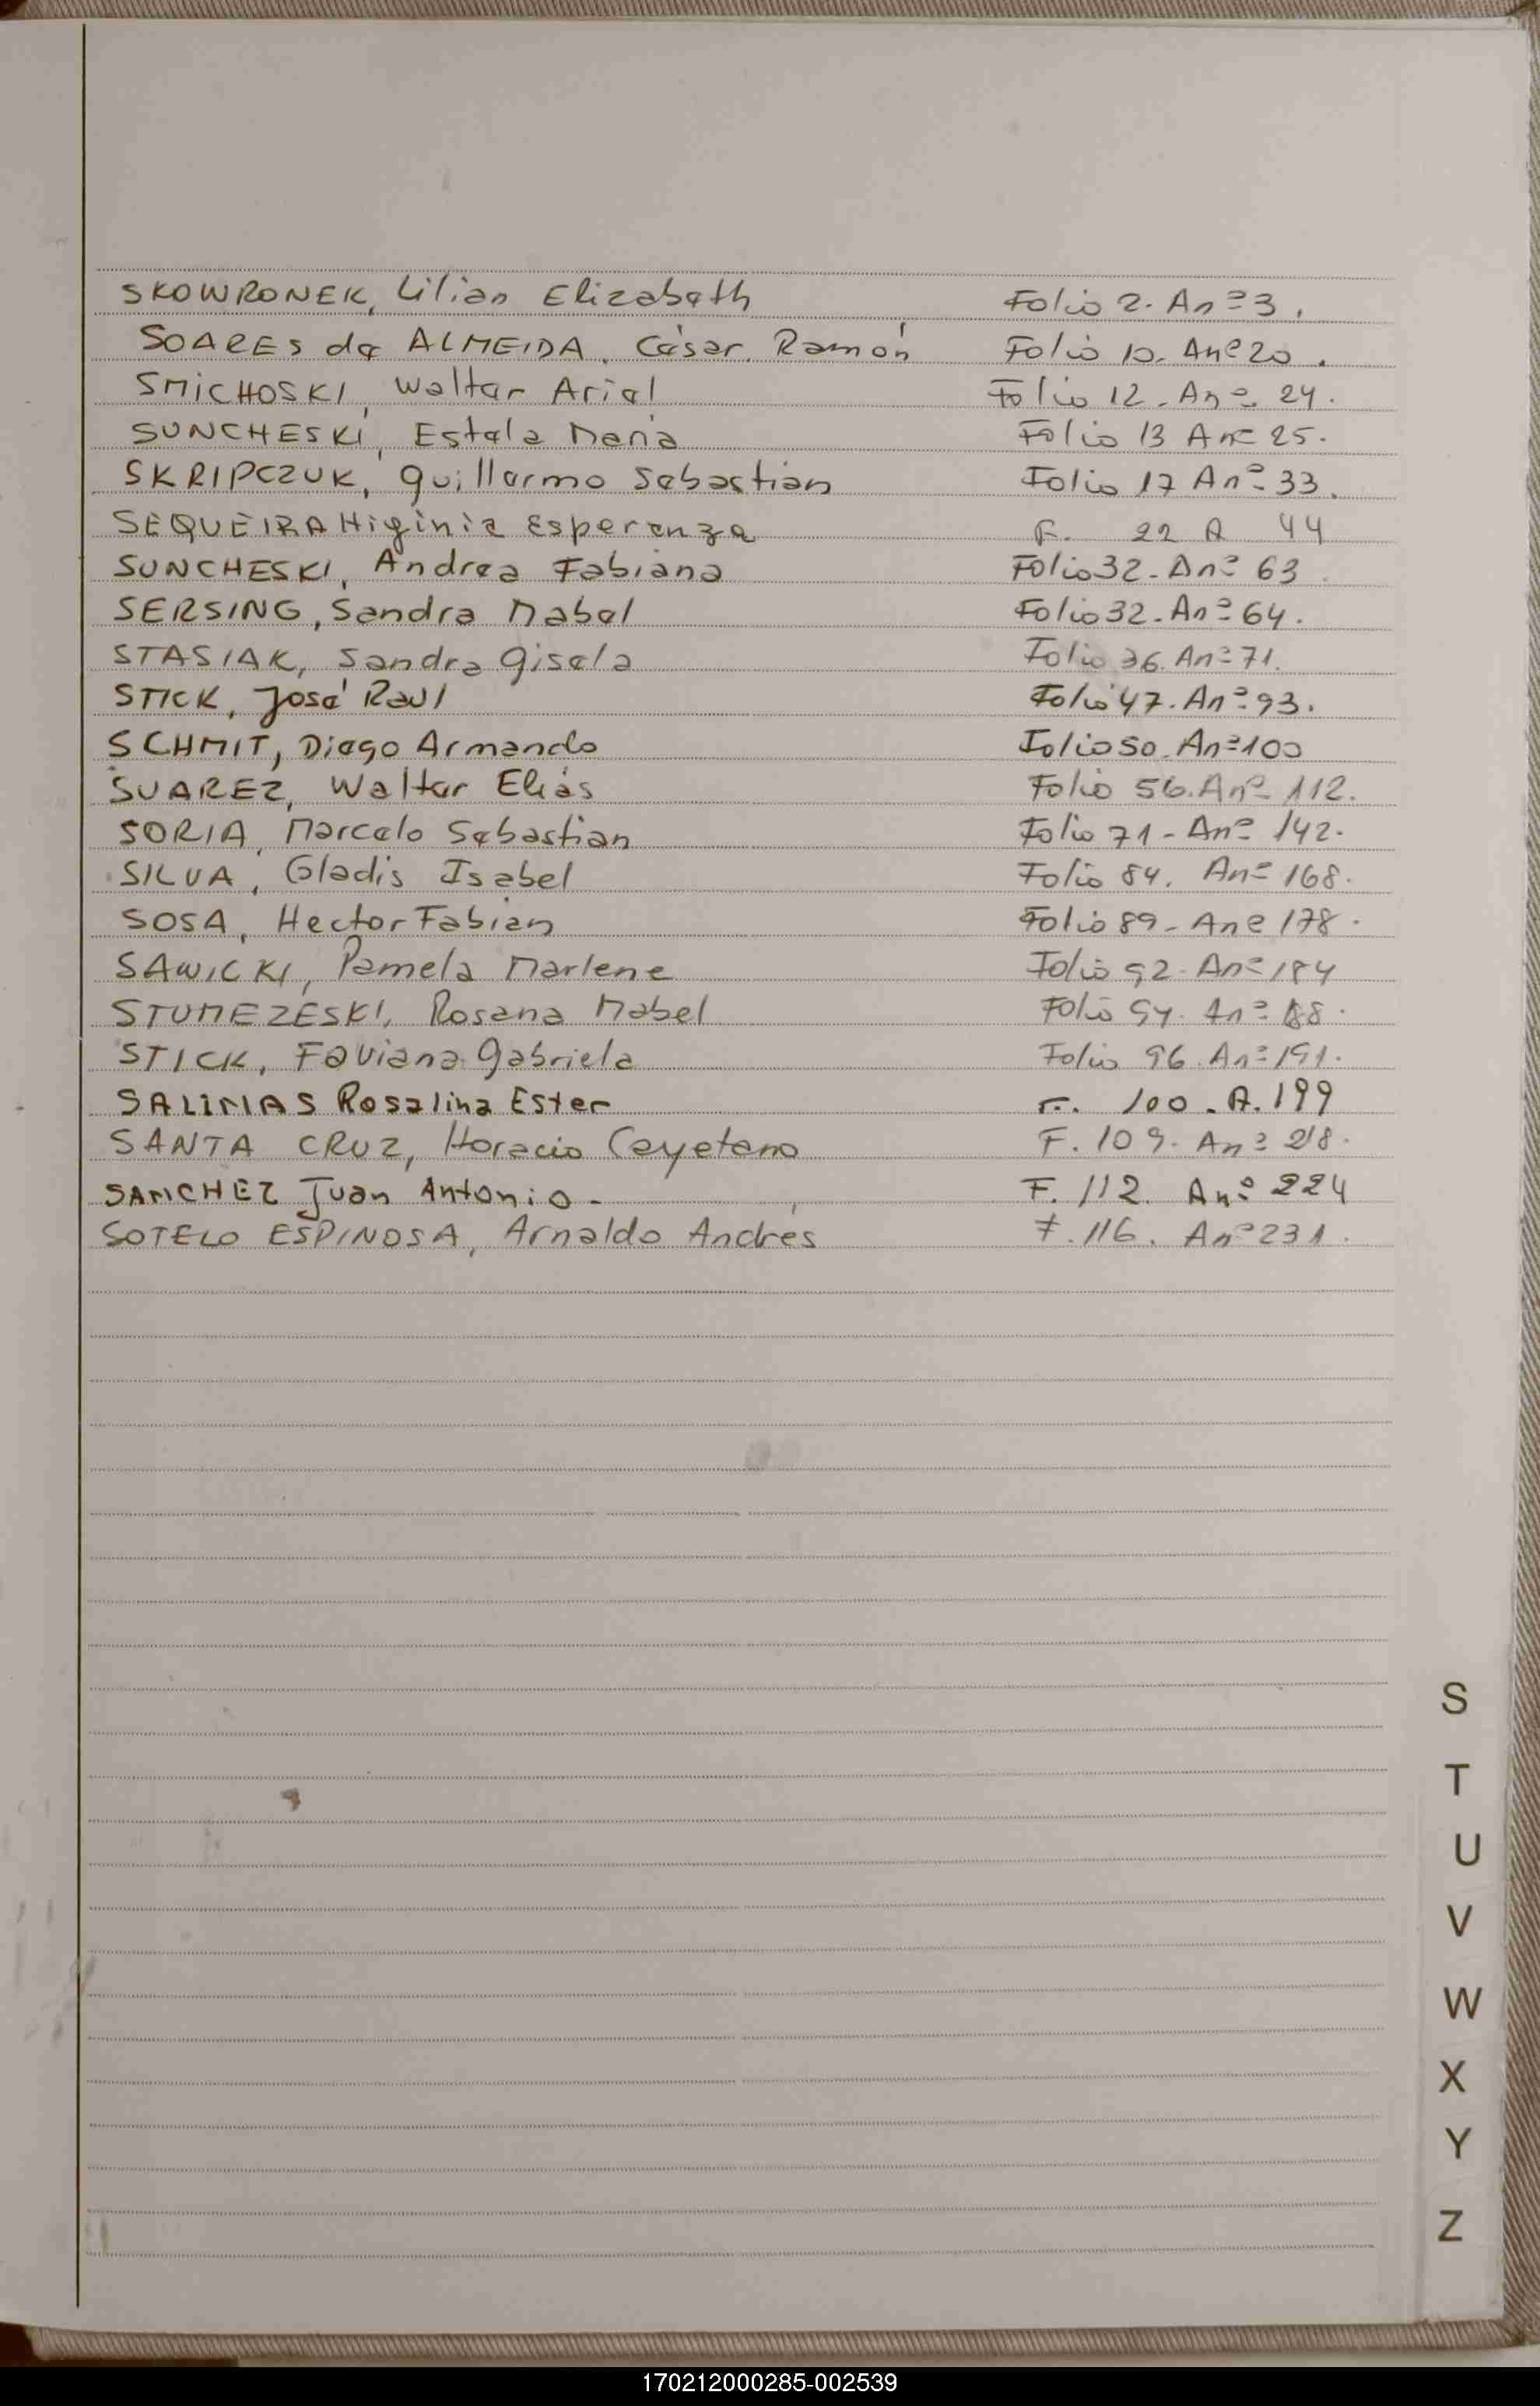 SKOWRONEK, Lilian Elizabeth Folio 2. Anº 3.
SOARES de ALMEIDA, César Ramón Folio 10. Anº 20.
SMICHOSKI, Walter Ariel Folio 12. Anº. 24.
SUNCHESKI, Estela María Folio 13 Anº 25.
SKRIPCZUK, Guillermo Sebastián Folio 17 Anº 33.
SEQUEIRA Higinia Esperanza F. 22 A 44
SUNCHESKI, Andrea Fabiana Folio 32. Anº 63
SERSING, Sandra Mabel Folio 32. Anº 64.
STASIAK, Sandra Gisela Folio 36. Anº 71.
STICK, José Raul Folio 47. Anº 93.
SCHMIT, Diego Armando Folio 50. Anº 100
SUAREZ, Walter Elías Folio 56. Anº 112.
SORIA, Marcelo Sebastian Folio 71 - Anº 142.
SILVA, Gladis Isabel Folio 84. Anº 168.
SOSA, Hector Fabian Folio 89 - Anº 178.
SAWICKI, Pamela Marlene Folio 92. Anº 184
STUMEZESKI, Rosana Mabel Folio 94. Anº 188.
STICK, Faviana Gabriela Folio 96. Anº 191.
SALINAS Rosalina Ester F. 100. A. 199
SANTA CRUZ, Horacio Cayetano F. 109. Anº 218.
SANCHEZ Juan Antonio - F. 112. Anº 224
SOTELO ESPINOSA, Arnaldo Andrés F. 116. Anº 231.
S
T
U
V
W
X
Y
Z
170212000285-002539